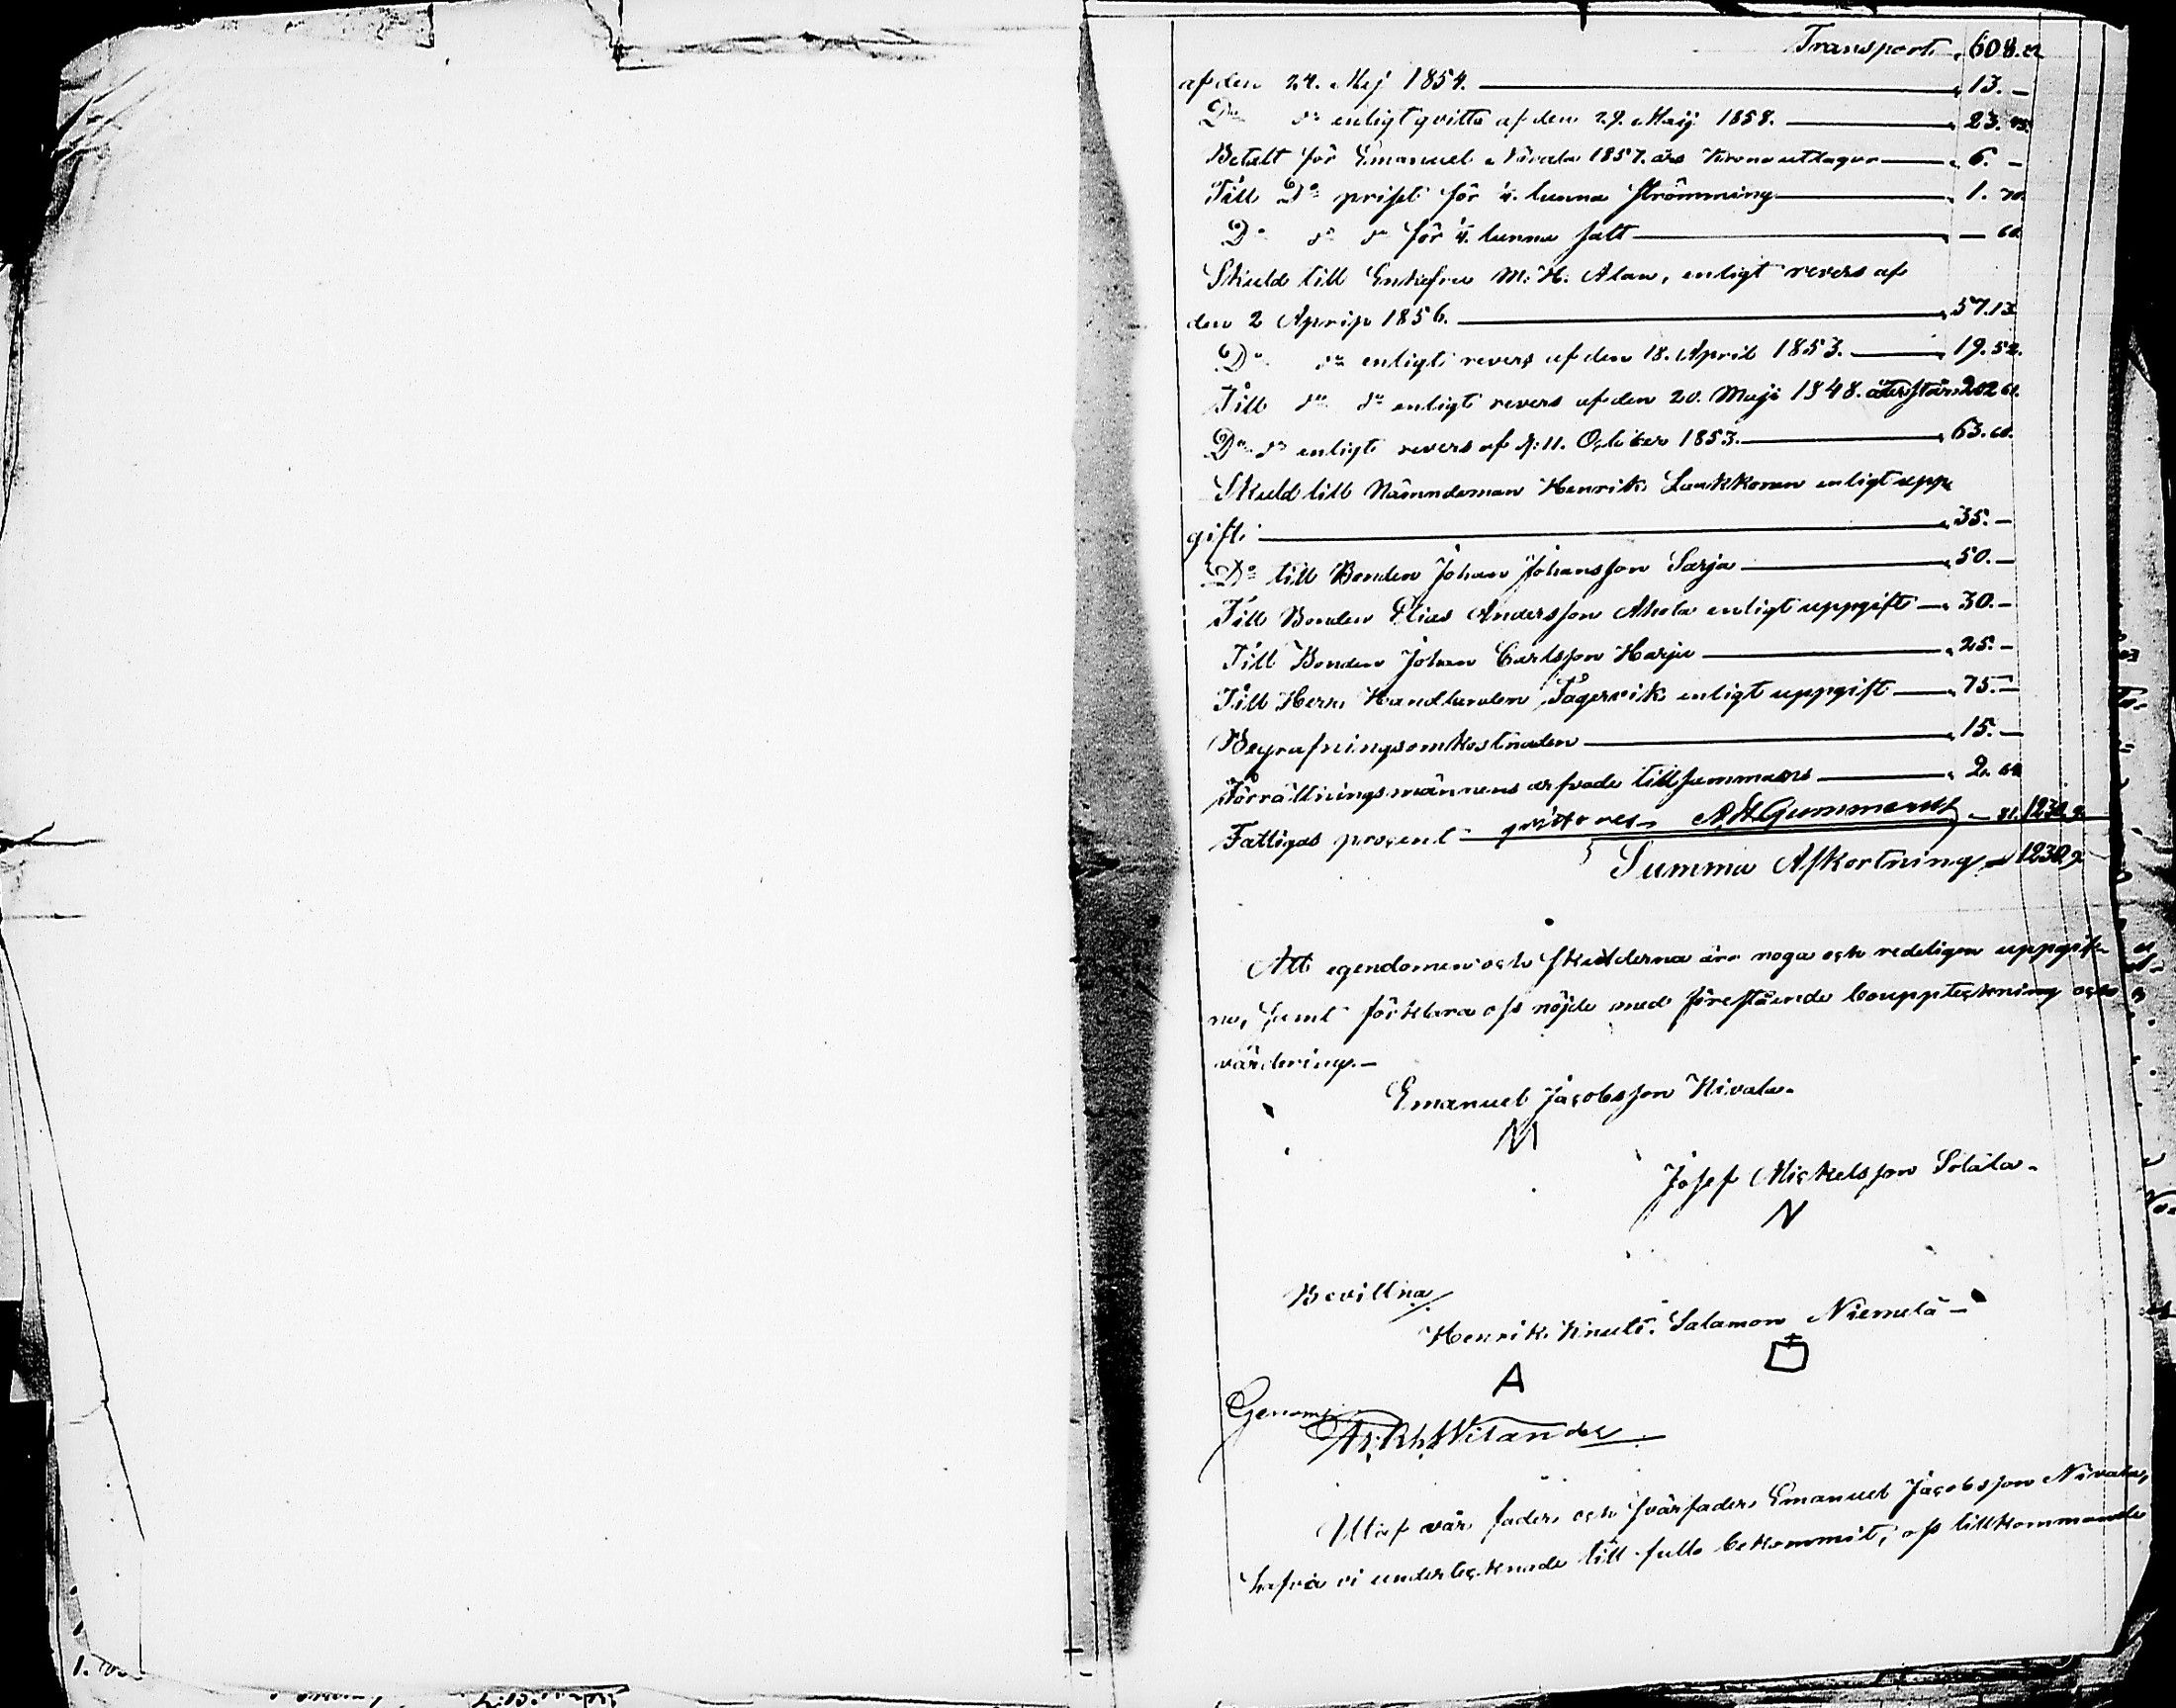 Transport 608.
af den 24. Mej 1854. 13. –
Do do enligt qvitto af den 29. Maij 1858. 23.
Betalt för Emanuel Nivala 1857. års Krono utlagor 6. –
Till Do prist för 1/4. tunna strömming 1. 70.
Do do do för 1/4. tunna salt – 60
Skuld till Enkefru M: H. Alan, enligt revers af
den 2 April 1856. 57.13
Do do enligt revers af den 18. April 1853. 19. 52.
Till do do enligt revers af den 20. Maji 1848. återstår 202 61.
Do do enligt revers af d: 11. October 1853. 63. 60.
Skuld till Nämndeman Henrik Laukkonen enligt upp
gift. 35. –
Do till Bonden Johan Johansson Sarja 50. –
Till Bonden Elias Andersson Ahola enligt uppgift 30. –
Till Bonden Johan Carlsson Harju 25. –
Till Herr Handlanden Fagervik enligt uppgift 75. –
Begrafningsomkostnaden 15. –
Förrättningsmännens arfvode tillsammans 2.
Fattigas procent qvitteres 1230.
Summa Afkortning 1230,
Att egendomen och skulderna äro noga och redeligen uppgif
ne, samt förklara oss nöjde med förestående bouppteckning och
värdering. –
Emanuel Jacobsson Nivala.
M
Josef Mickelsson Sotala.
N
Bevittna
Henrik Knuti. Salamon Niemelä –
A
Genom
Utaf vår fader och svärfader Emanuel Jacobsson Nivala,
hafva vi undertecknade till fullo bekommit, oss tillkommande